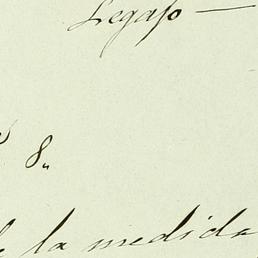 Legajo —
8„
la medida